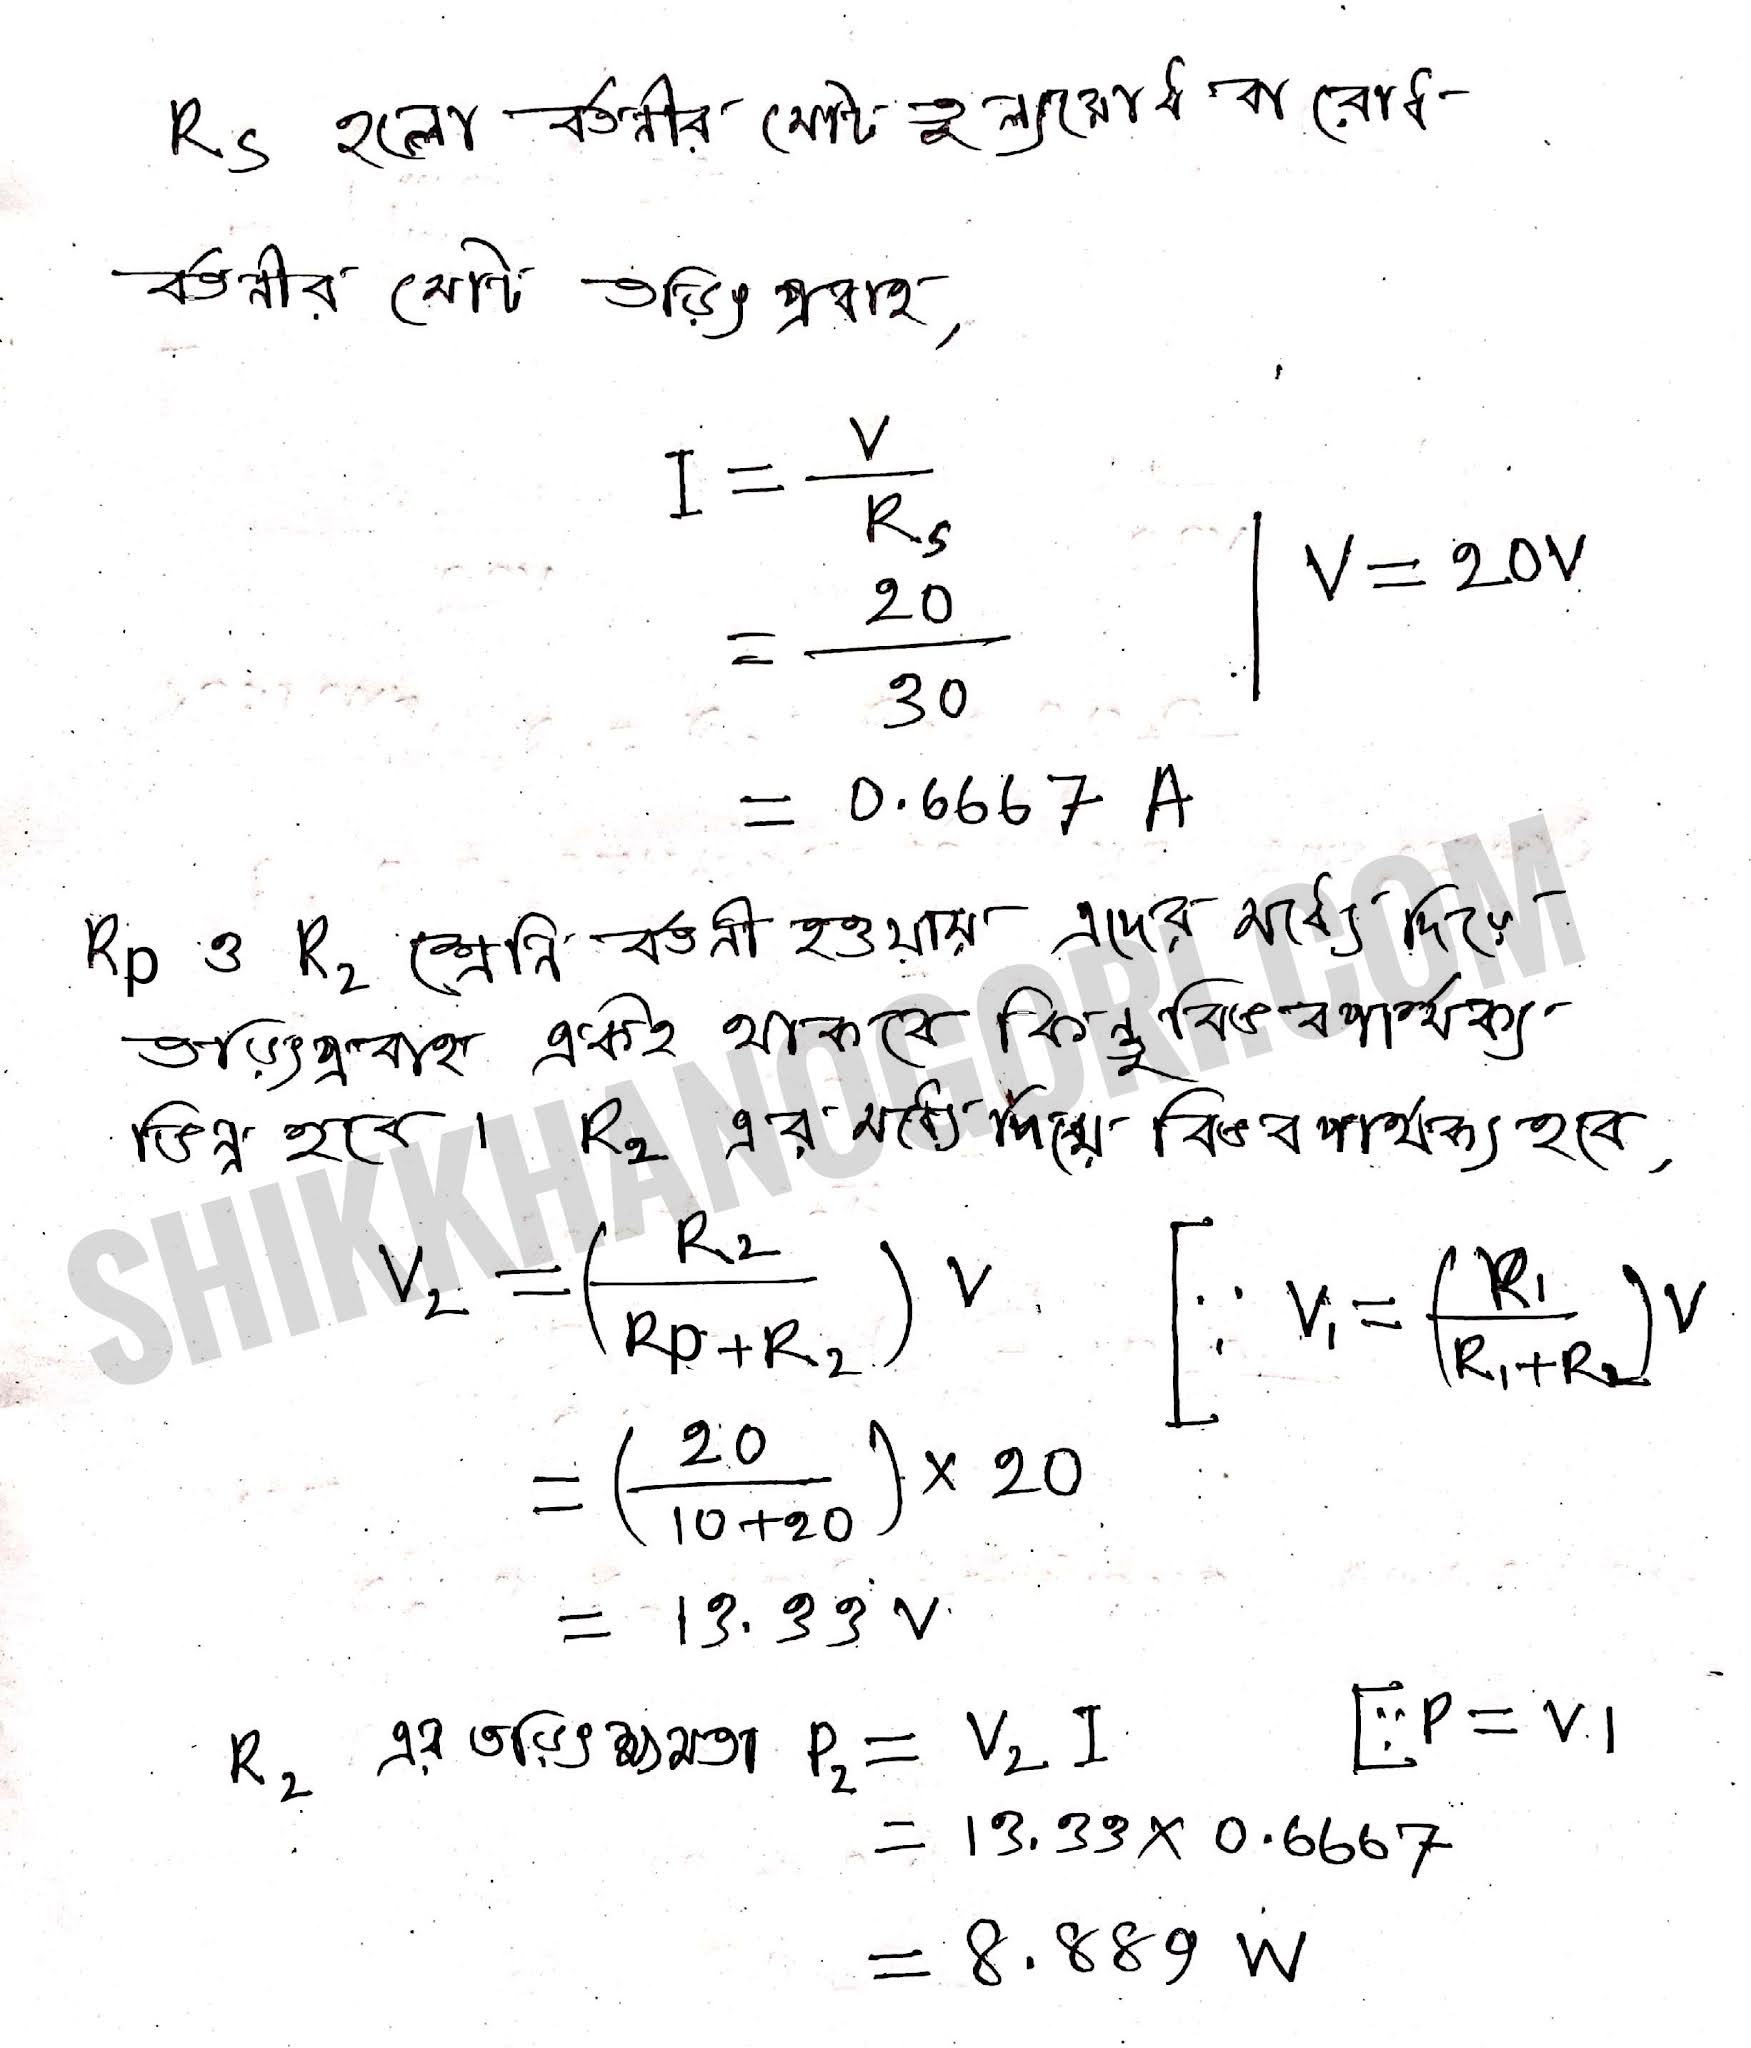 Rs হলো বর্তনীর মোট তুল্যরোধ বা রোধ
বর্তনীর মোট তড়িৎপ্রবাহ,
I = V/Rs
= 20/30 | V = 20V
= 0.6667 A
Rp ও R2 শ্রেনি বর্তনী হওয়ায় এদের মধ্যে দিয়ে
তড়িৎপ্রবাহ একই থাকবে কিন্তু বিভবপার্থক্য
ভিন্ন হবে। R2 এর মধ্যে দিয়ে বিভবপার্থক্য হবে,
V2 = (R2/(Rp+R2)) V [∵ V1 = (R1/(R1+R2)) V
= (20/(10+20)) × 20
= 13.33 V
R2 এর তড়িৎক্ষমতা P2 = V2 I [∵ P = VI
= 13.33 × 0.6667
= 8.889 W
SHIKKHANOGORI.COM